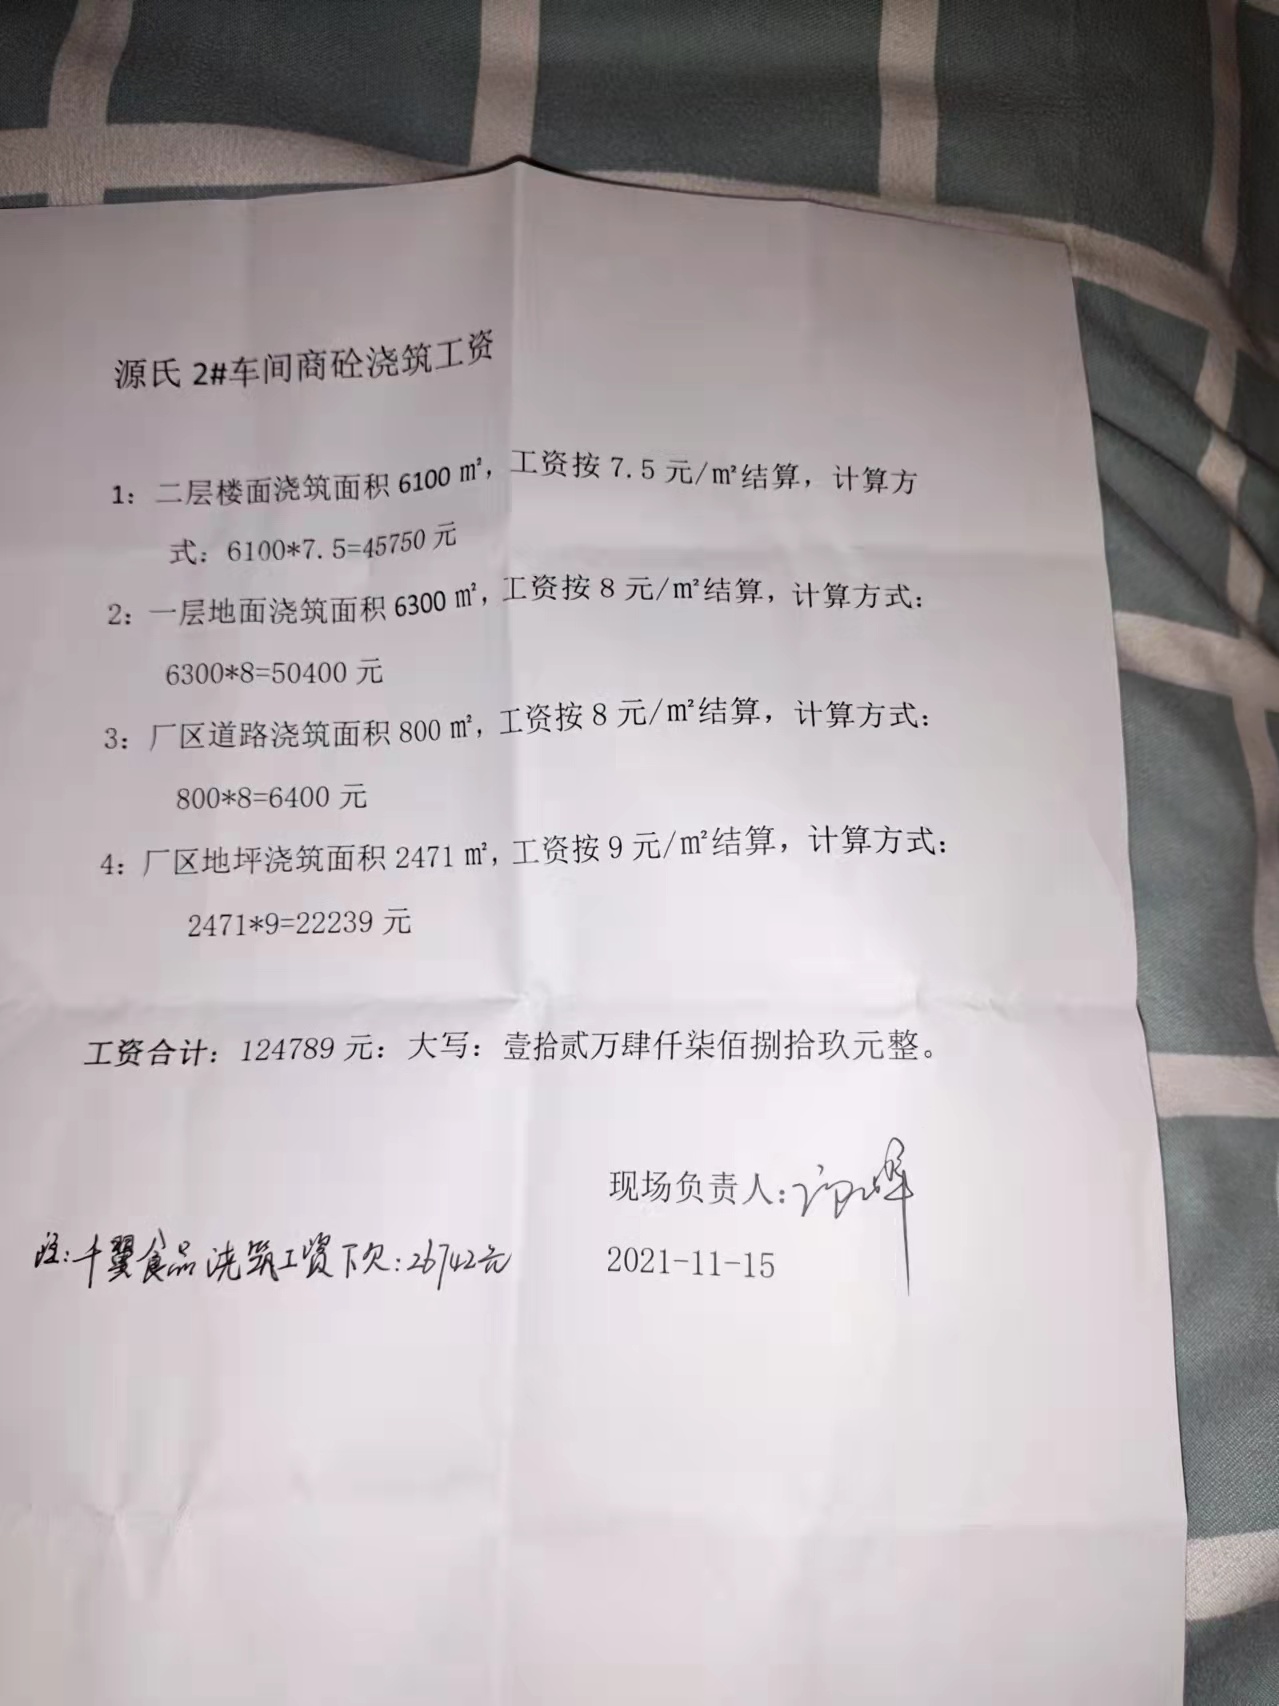 源氏 2#车间商砼浇筑工资
1：二层楼面浇筑面积 6100 ㎡，工资按 7.5 元/㎡结算，计算方
式：6100*7.5=45750 元
2：一层地面浇筑面积 6300 ㎡，工资按 8 元/㎡结算，计算方式：
6300*8=50400 元
3：厂区道路浇筑面积 800 ㎡，工资按 8 元/㎡结算，计算方式：
800*8=6400 元
4：厂区地坪浇筑面积 2471 ㎡，工资按 9 元/㎡结算，计算方式：
2471*9=22239 元
工资合计：124789 元：大写：壹拾贰万肆仟柒佰捌拾玖元整。
现场负责人：
注：千翼食品浇筑工资下欠：26742元
2021-11-15